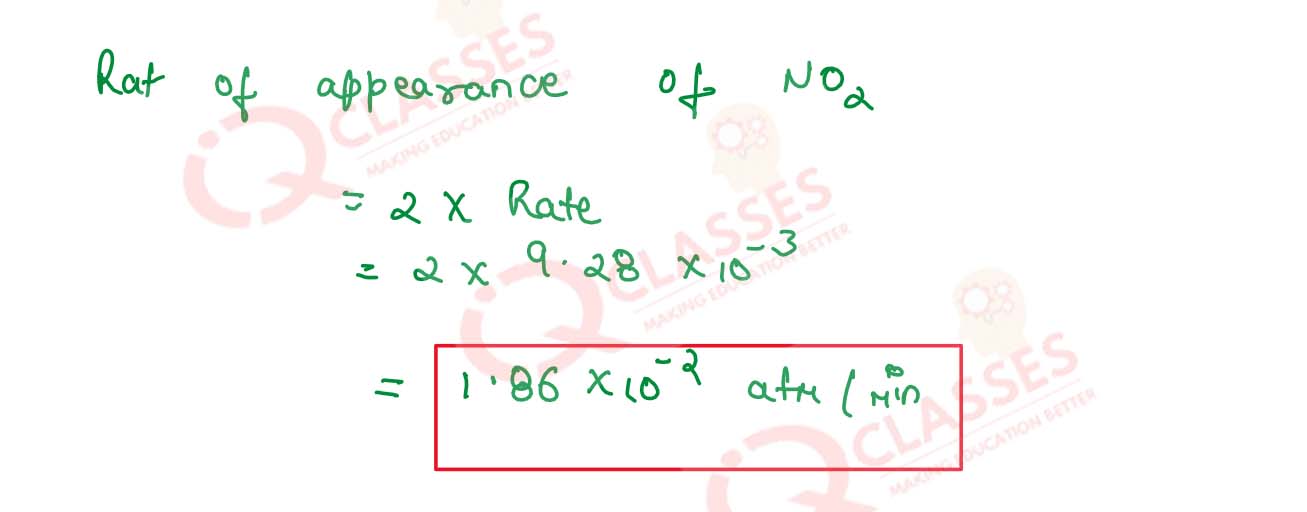 Rat of appearance of NO₂
= 2 × Rate
= 2 × 9.28 × 10⁻³
= 1.86 × 10⁻² atm / min
IQ CLASSES
MAKING EDUCATION BETTER
IQ CLASSES
MAKING EDUCATION BETTER
IQ CLASSES
MAKING EDUCATION BETTER